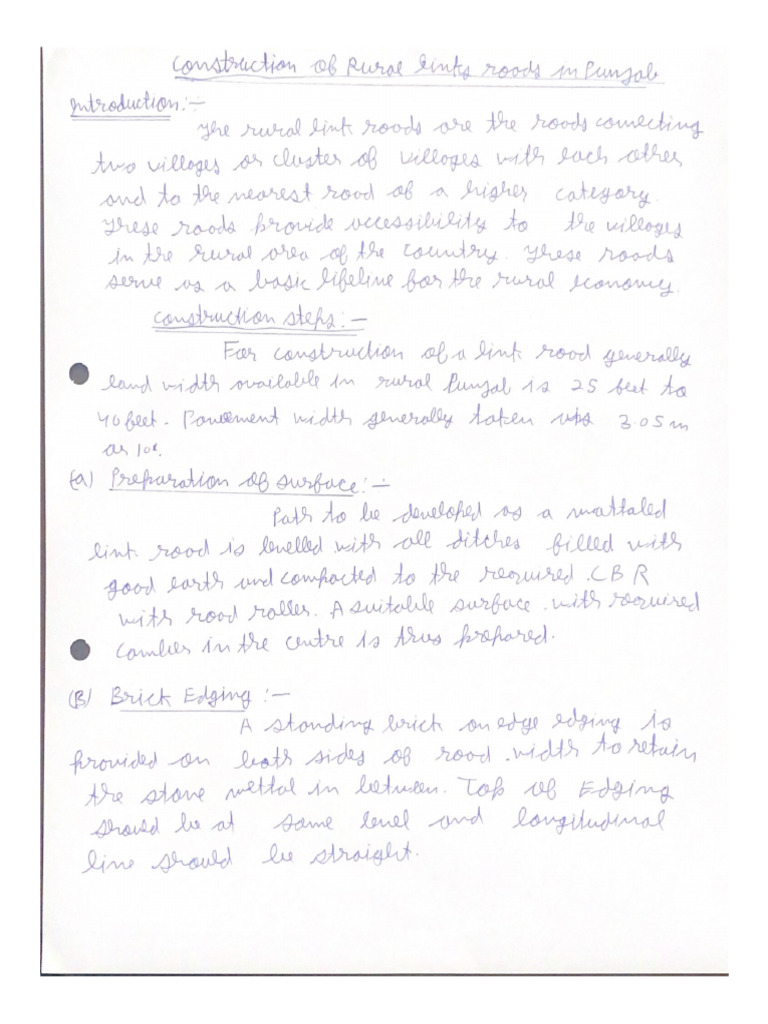 Construction of Rural links roads in Punjab
Introduction:-
The rural link roads are the roads connecting
two villages or cluster of villages with each other
and to the nearest road of a higher category.
These roads provide accessibility to the villages
in the rural area of the country. These roads
serve as a basic lifeline for the rural economy.
Construction steps:-
For construction of a link road generally
land width available in rural Punjab is 25 feet to
40 feet. Pavement width generally taken 3.05m
as 10'.
(a) Preparation of surface:-
Path to be developed as a mattaled
link road is levelled with all ditches filled with
good earth and compacted to the required CBR
with road roller. A suitable surface with required
camber in the centre is thus prepared.
(B) Brick Edging :-
A standing brick on edge edging is
provided on both sides of road width to retain
the stone mettal in between. Top of Edging
should be at same level and longitudinal
line should be straight.